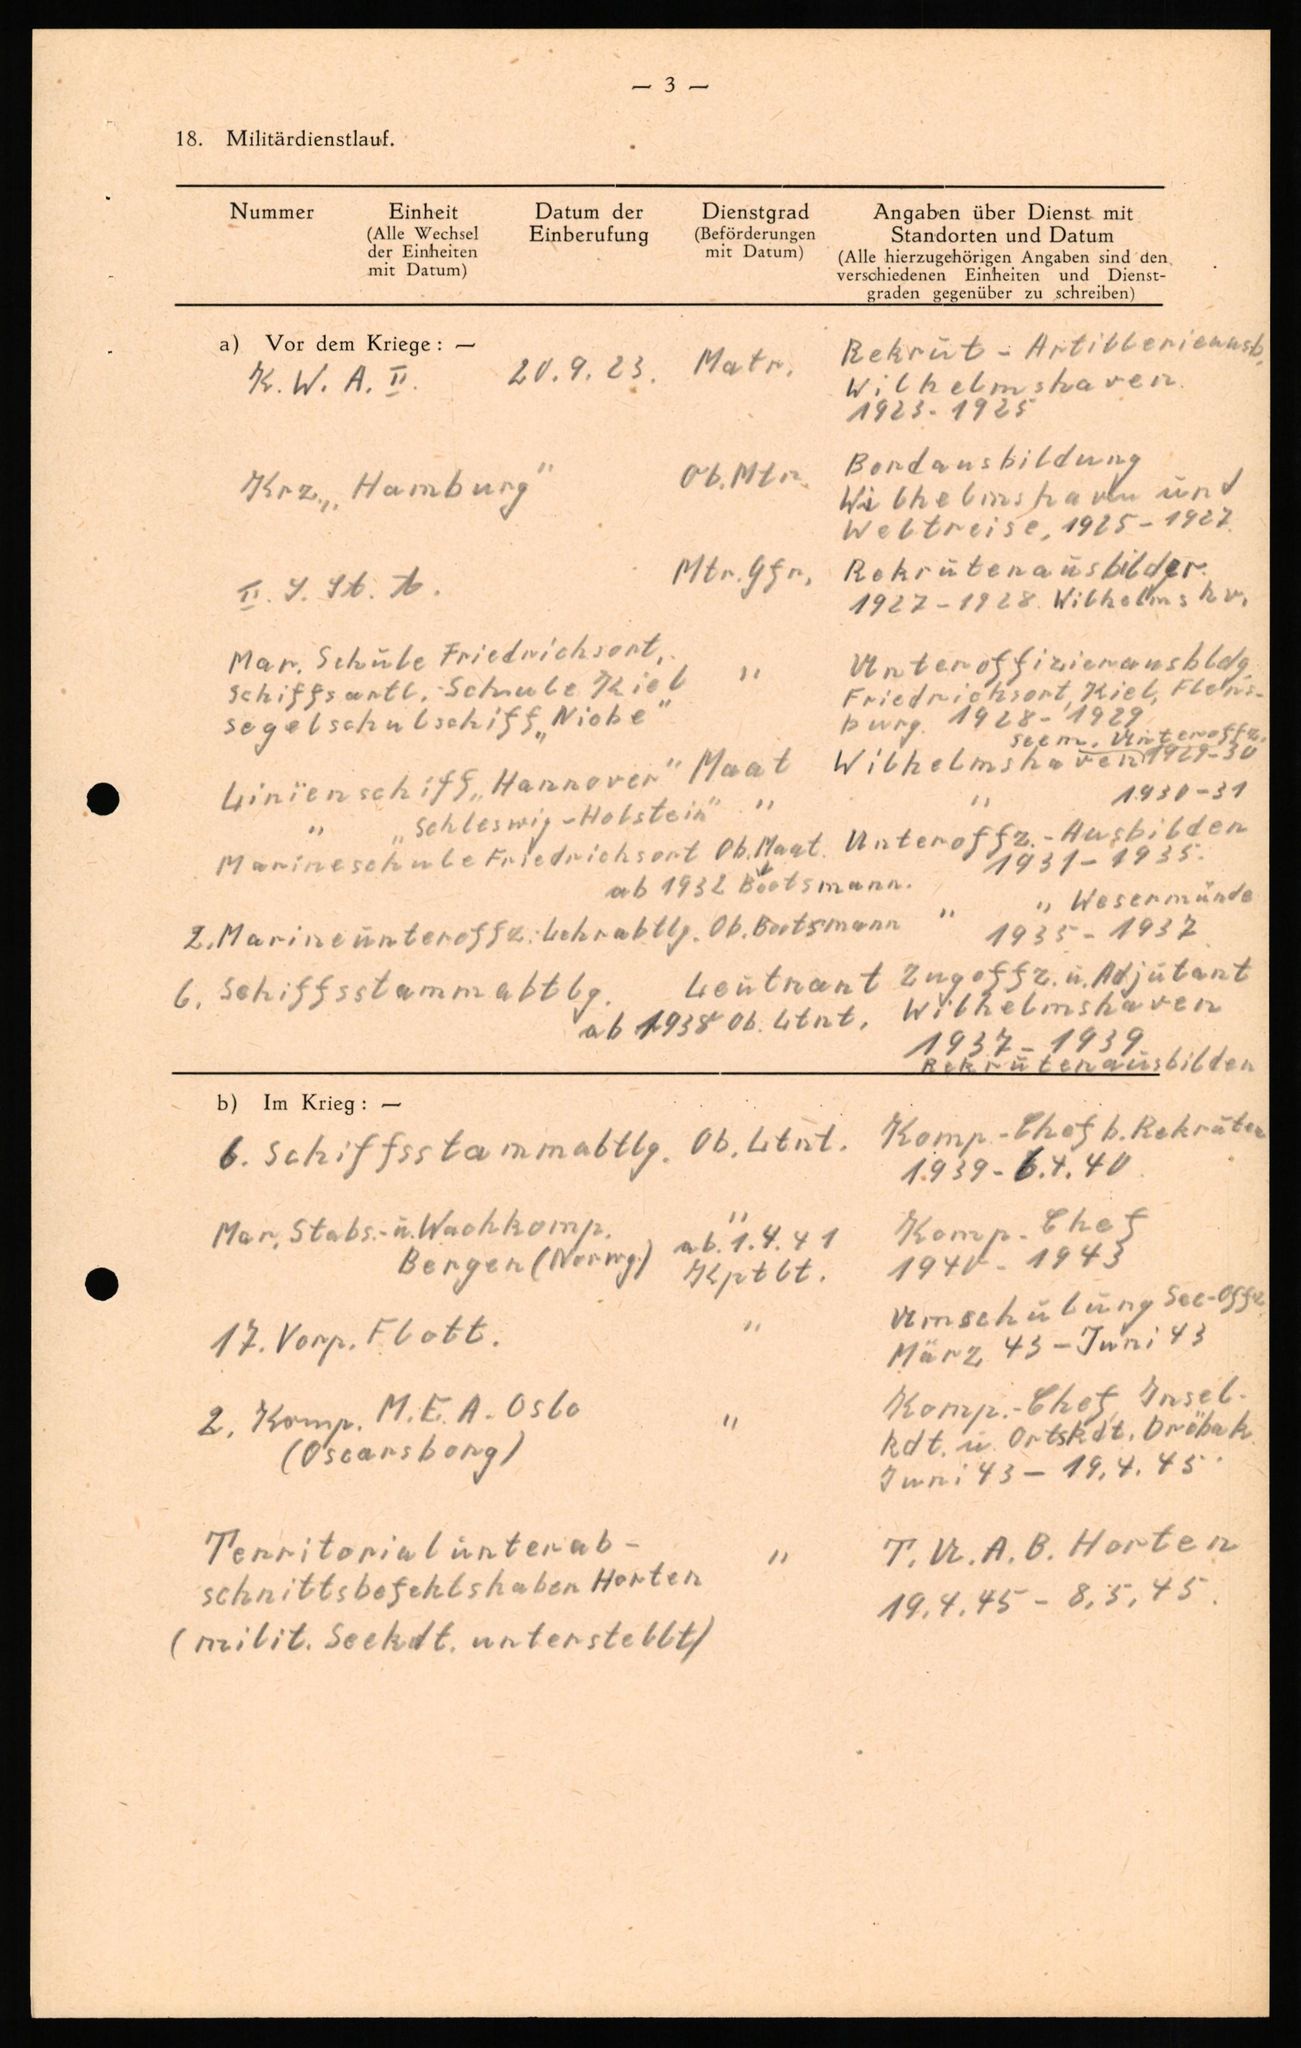 — 3 —
18. Militärdienstlauf.
Nummer
Einheit
(Alle Wechsel
der Einheiten
mit Datum)
Datum der
Einberufung
Dienstgrad
(Beförderungen
mit Datum)
Angaben über Dienst mit
Standorten und Datum
(Alle hierzugehörigen Angaben sind den
verschiedenen Einheiten und Dienst-
graden gegenüber zu schreiben)
a) Vor dem Kriege: —
K. W. A. II. 20.9.23. Matr. Rekrut - Artillerieausb.
Wilhelmshaven
1923-1925
Krz. „Hamburg" Ob. Mtr. Bordausbildung
Wilhelmshaven und
Weltreise, 1925-1927
II. S. St. A. Mtr. Gfr. Rekrutenausbilder
1927-1928 Wilhelmshv.
Mar. Schule Friedrichsort, " Unteroffizierausbldg
Schiffsartl. Schule Kiel Friedrichsort, Kiel, Flens-
Segelschulschiff „Niobe" burg 1928-1929
seem. Unteroffz.
Linienschiff „Hannover" Maat Wilhelmshaven 1929-30
" „Schleswig-Holstein" " " 1930-31
Marineschule Friedrichsort Ob. Maat. Unteroffz.-Ausbilder
1931-1935.
ab 1932 Bootsmann.
" " Wesermünde
2. Marineunteroffz. Lehrabtlg. Ob. Bootsmann 1935-1937
6. Schiffsstammabtlg. Leutnant Zugoffz. u. Adjutant
ab 1938 Ob. Ltnt. Wilhelmshaven
1937-1939
Rekrutenausbilder
b) Im Krieg: —
6. Schiffsstammabtlg. Ob. Ltnt. Komp.-Chef b. Rekruten
1939-6.4.40
Mar. Stabs- u. Wachkomp. " Komp. Chef
Bergen (Norwg.) ab. 1.4.41 1940-1943
Kptlt.
17. Vorp. Flott. " Umschulung See-Offz
März 43 - Juni 43
2. Komp. M.E.A. Oslo " Komp.-Chef, Insel-
(Oscarsborg) kdt. u. Ortskdt. Dröbak
Juni 43 - 19.4.45.
Territorialunterab- " T.U.A.B. Horten
schnittsbefehlshaber Horten 19.4.45 - 8.5.45.
(milit. Seekdt. unterstellt)